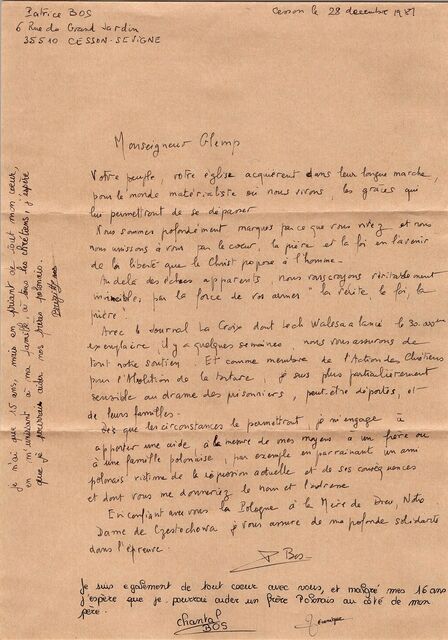 Patrice BOS
6 Rue du Grand Jardin
35510 CESSON-SEVIGNE
Cesson le 28 decembre 1981
Monseigneur Glemp
Votre peuple, votre église acquèrent dans leur longue marche,
pour le monde matérialiste où nous vivons, les grâces qui
lui permettront de se dépasser
Nous sommes profondément marqués par ce que vous vivez et nous
nous unissons à vous par le coeur, la prière et la foi en l'avenir
de la liberté que le Christ propose à l'homme.
Au delà des échecs apparents, nous vous croyons véritablement
invincibles, par la force de vos armes " la vérité, la foi, la
prière".
Avec le Journal La Croix dont Lech Walesa a lancé le 30.000e
exemplaire, il y a quelques semaines, nous vous assurons de
tout notre soutien. Et comme membre de l'Action des Chrétiens
pour l'Abolition de la torture, je suis plus particulièrement
sensible au drame des prisonniers, peut-être déportés, et
de leurs familles.
Dès que les circonstances le permettront, je m'engage à
apporter une aide à la mesure de mes moyens à un frère ou
à une famille polonaise, par exemple en parrainant un ami
polonais victime de la répression actuelle et de ses conséquences
et dont vous me donneriez le nom et l'adresse
En confiant avec vous la Pologne à la Mère de Dieu, Notre
Dame de Czestochowa je vous assure de ma profonde solidarité
dans l'épreuve.
P Bos
Je suis egalement de tout coeur avec vous, et malgré mes 16 ans
j'espère que je pourrai aider un frère Polonais au côté de mon
père.
Chantal
BOS
Véronique
Je n'ai que 15 ans, mais en priant de tout mon coeur,
en m'unissant à ma famille, à tous les chrétiens, j'espère
que je pourrais aider nos frères polonais.